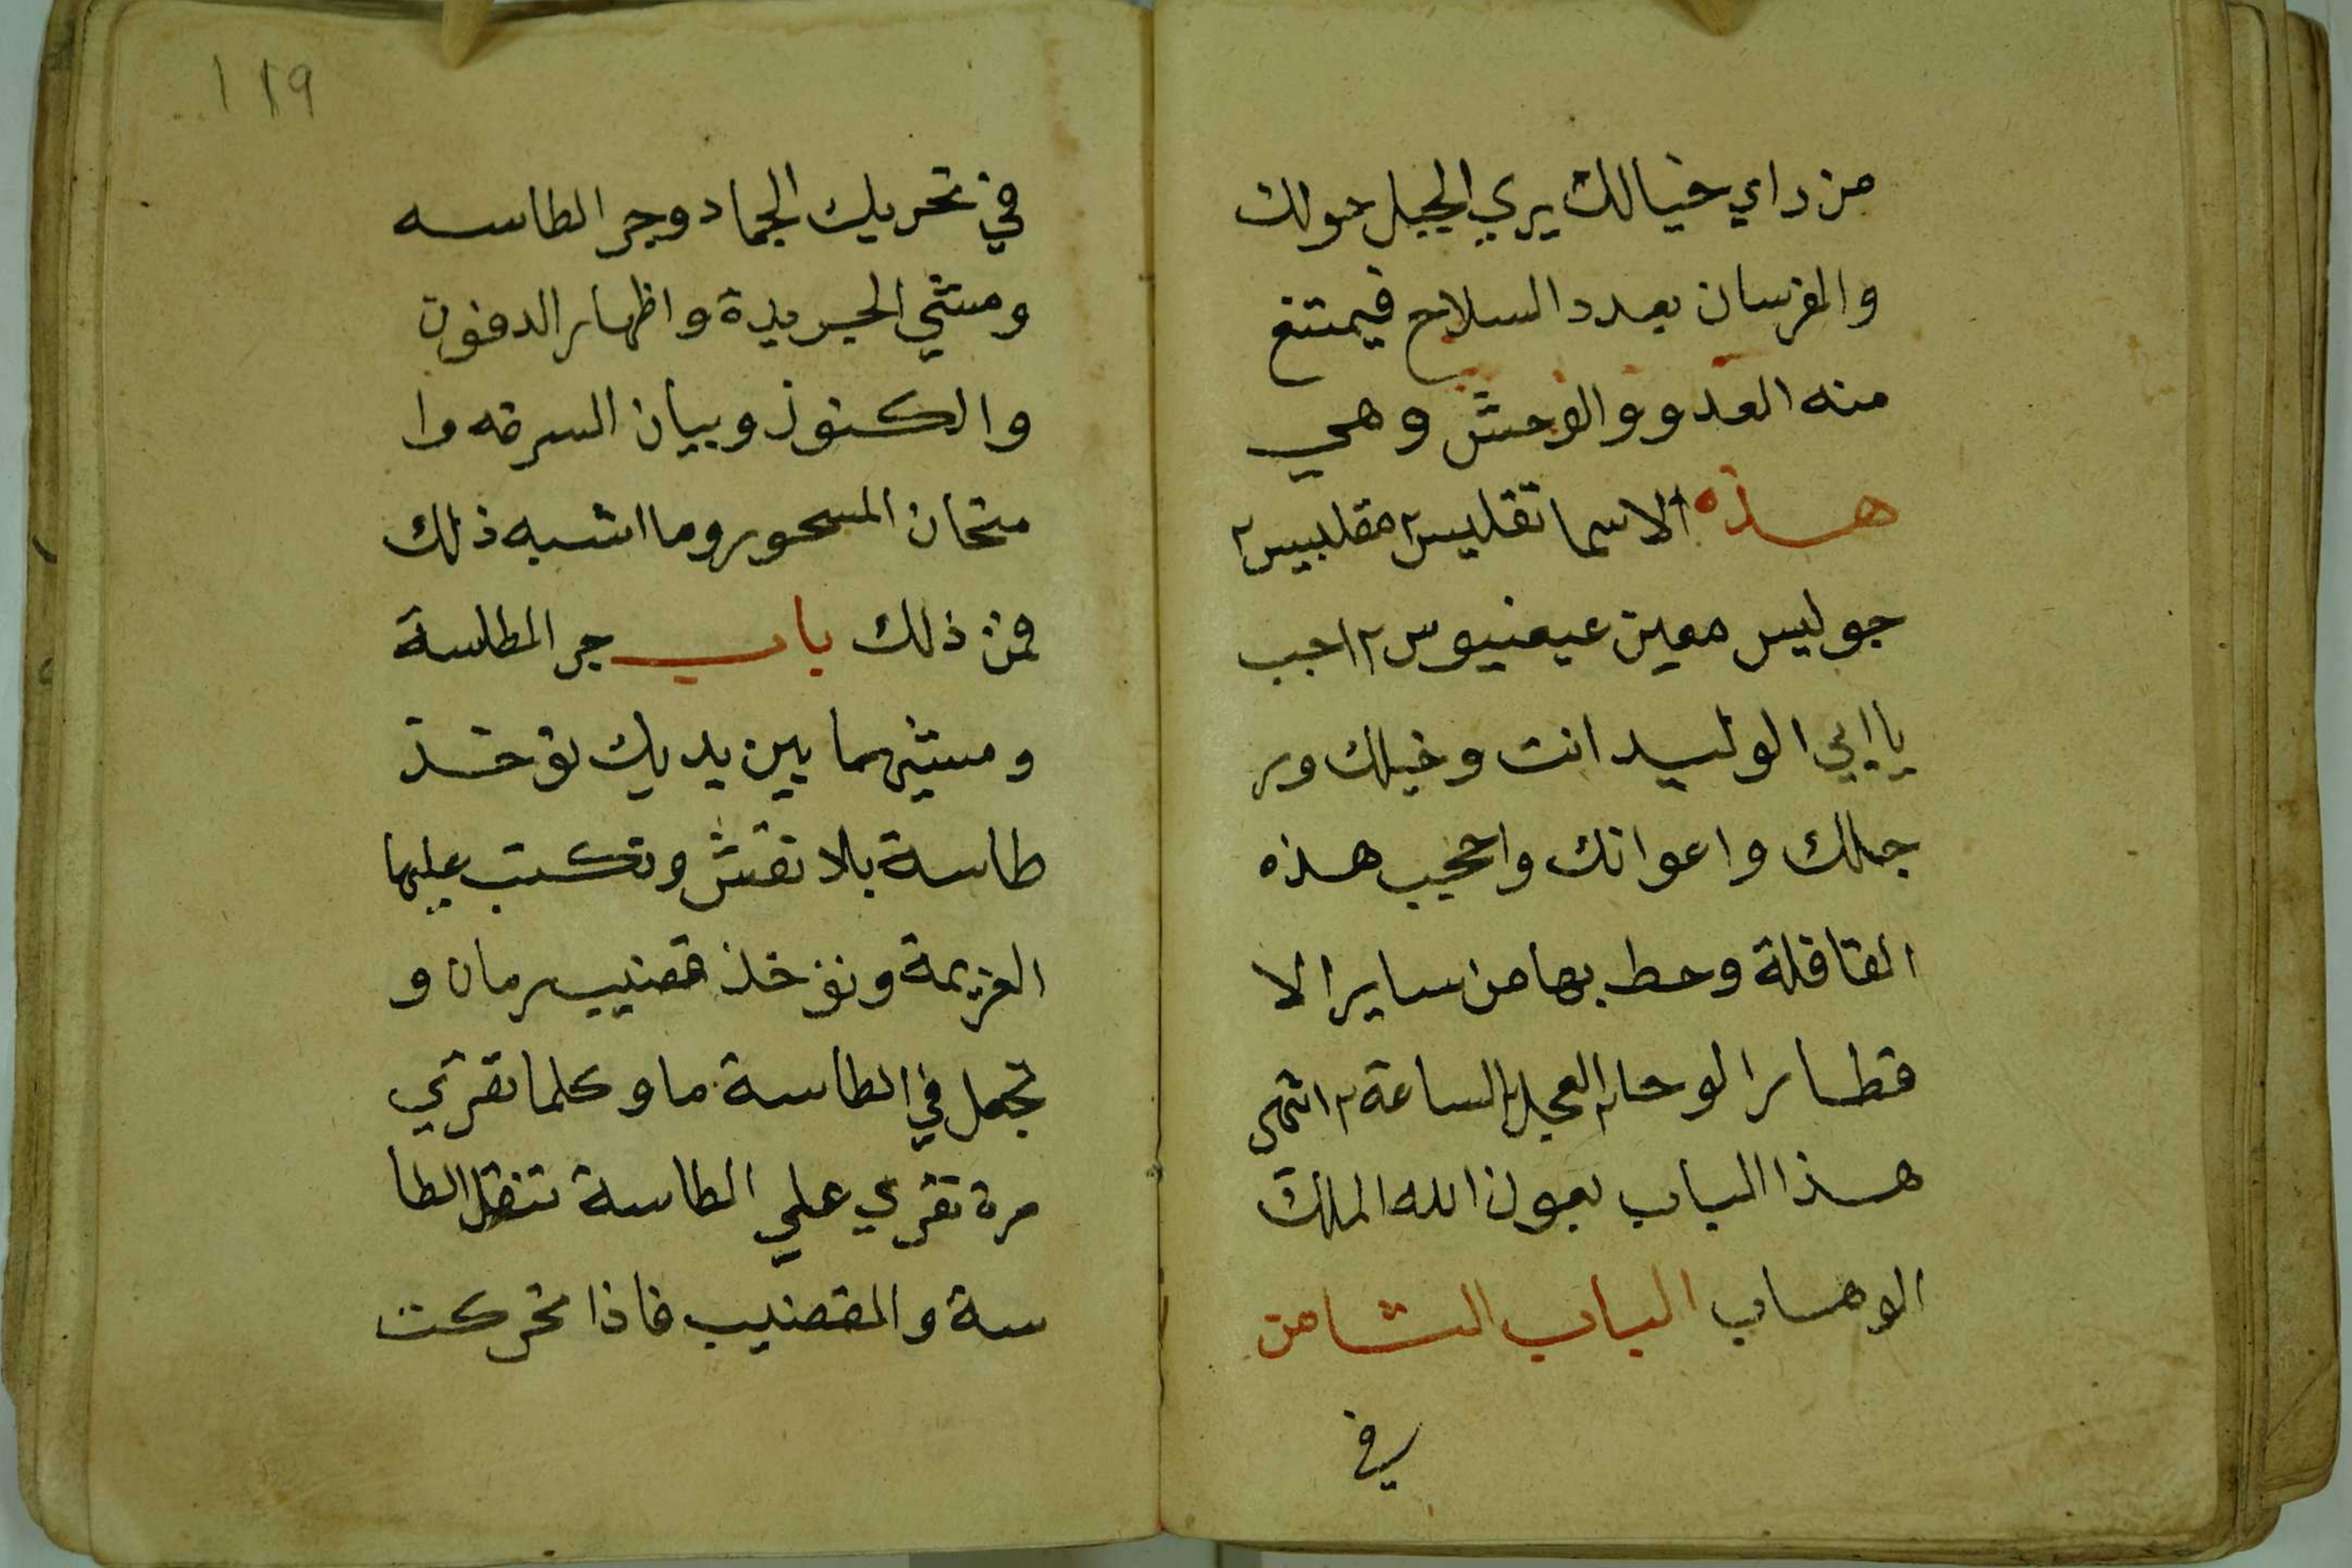 من راي خيالك يري الجبل حولك
والفرسان بعدد السلاح فيمتنع
منه العدو والوحش وهي
هذه الاسما تقليس ٢ مقلبيس ٢
جوليس معين عيفنيوس ٢ اجب
يا ابي الوليد انت وخيلك ور
جلك واعوانك واحجب هذه
القافلة وحط بها من ساير الا
قطار الوحا ٢ العجل ٢ الساعة ٢ انتهى
هذا الباب بعون الله الملك
الوهاب الباب الثامن
في
١١٩
في تحريك الجماد وجر الطاسه
ومشي الجريدة واظهار الدفون
والكنوز وبيان السرقه وا
متحان المسحور وما اشبه ذلك
فمن ذلك باب جر الطاسة
ومشيهما بين يديك توخذ
طاسة بلا نقش وتكتب عليها
العزيمة وتوخذ قضيب رمان و
تجعل في الطاسة ما وكلما تقري
مرة تقري علي الطاسة تنقل الطا
سة والقضيب فاذا تحركت